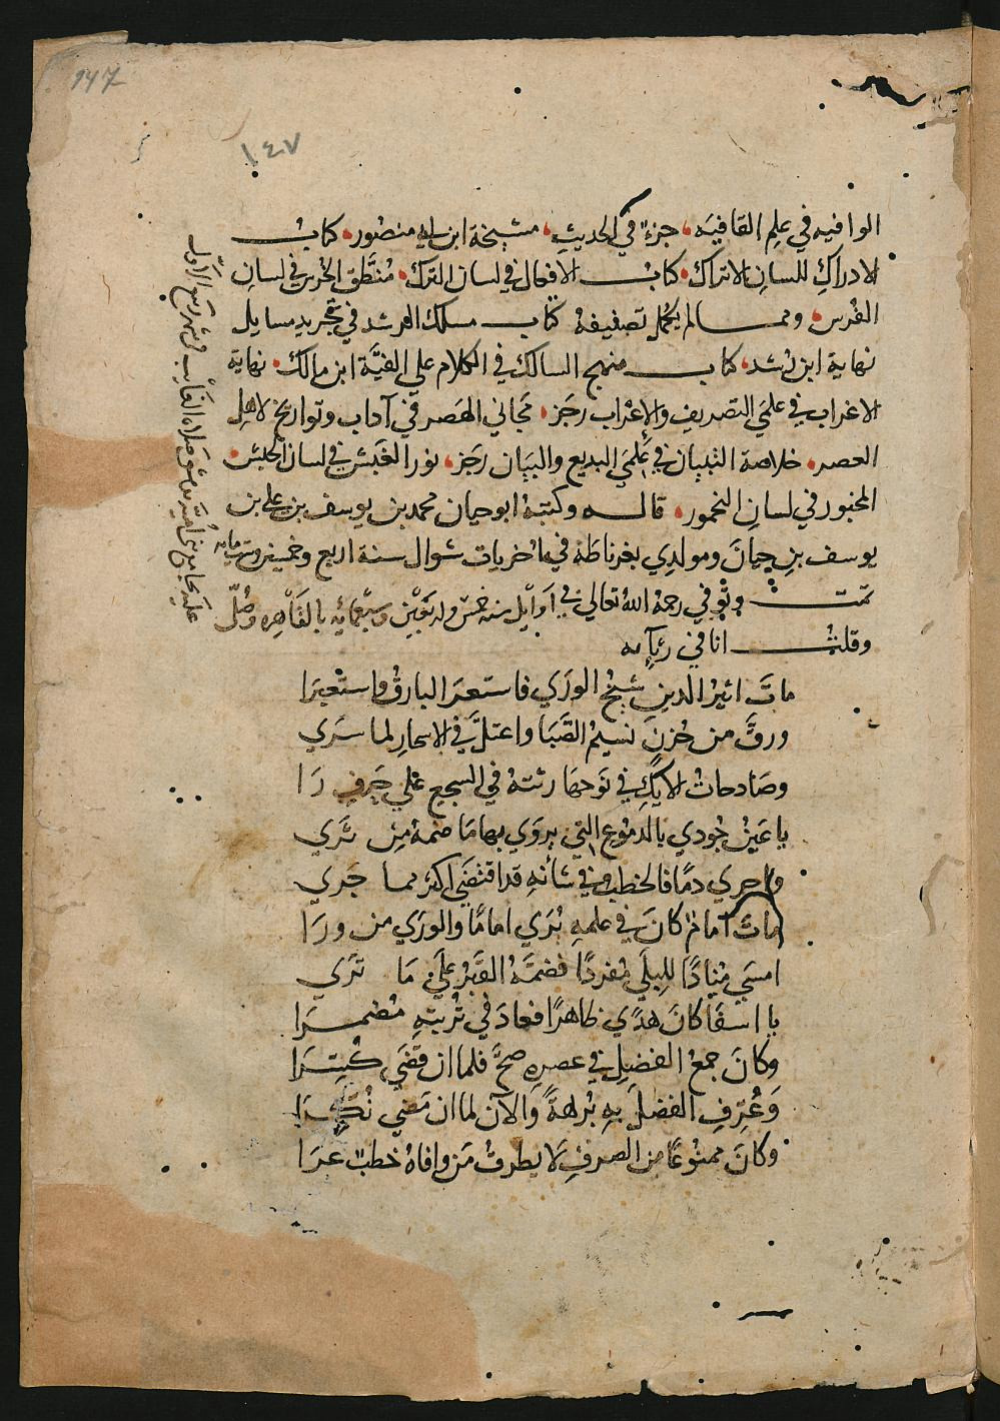 147
١٤٧
الوافيه في علم القافيه، جزء في الحديث، مشيخة ابن ابي منصور، كتاب
الادراك للسان الاتراك، كتاب الافعال في لسان الترك، منطق الخرس في لسان
الفرس، ومما لم يكمل تصنيفه كتاب مسلك الرشد في تجريد مسايل
نهاية ابن رشد، كتاب منهج السالك في الكلام علي الفية ابن مالك، نهاية
الاغراب في علمي التصريف والإعراب رجز، مجاني الهصر في آداب وتواريخ لاهل
العصر، خلاصة التبيان في علمي البديع والبيان رجز، نور الغبش في لسان الحبش،
المخبور في لسان اليخمور، قاله وكتبه ابوحيان محمد بن يوسف بن علي بن
يوسف بن حيان ومولدي بغرناطة في اخريات شوال سنة اربع وخمسين وستمايه
تمت وتوفي رحمه الله تعالي في اوايل سنه خمس واربعين وسبعمائه بالقاهره وصلّي
عليه بجامع بني أمية بدمشق صلاه الغايب في شهر ربيع الأوّل
وقلت انا في رثآيه
مات اثير الدين شيخ الوري فاستعر البارق واستعبرا
ورق من حزن نسيم الصبا واعتل في الاسحار لما سري
وصادحات الايك في نوحها رثته في السجع علي حرف را
يا عين جودي بالدموع التي يروي بها ما ضمه من ثري
واجري دما فالخطب في شأنه قد اقتضي اكثر مما جري
مات امام كان في علمه يري اماما والوري من ورا
امسي منادًا للبلي مفردًا فضمه القبر علي ما تري
يا اسفا كان هدي ظاهرًا فعاد في تربته مضمرا
وكان جمع الفضل في عصره صح فلما ان قضي كسرا
وعرف الفضل به برهةً والآن لما ان مضي نكرا
وكان ممنوعًا من الصرف لا يطرق من وافاه خطب عرا